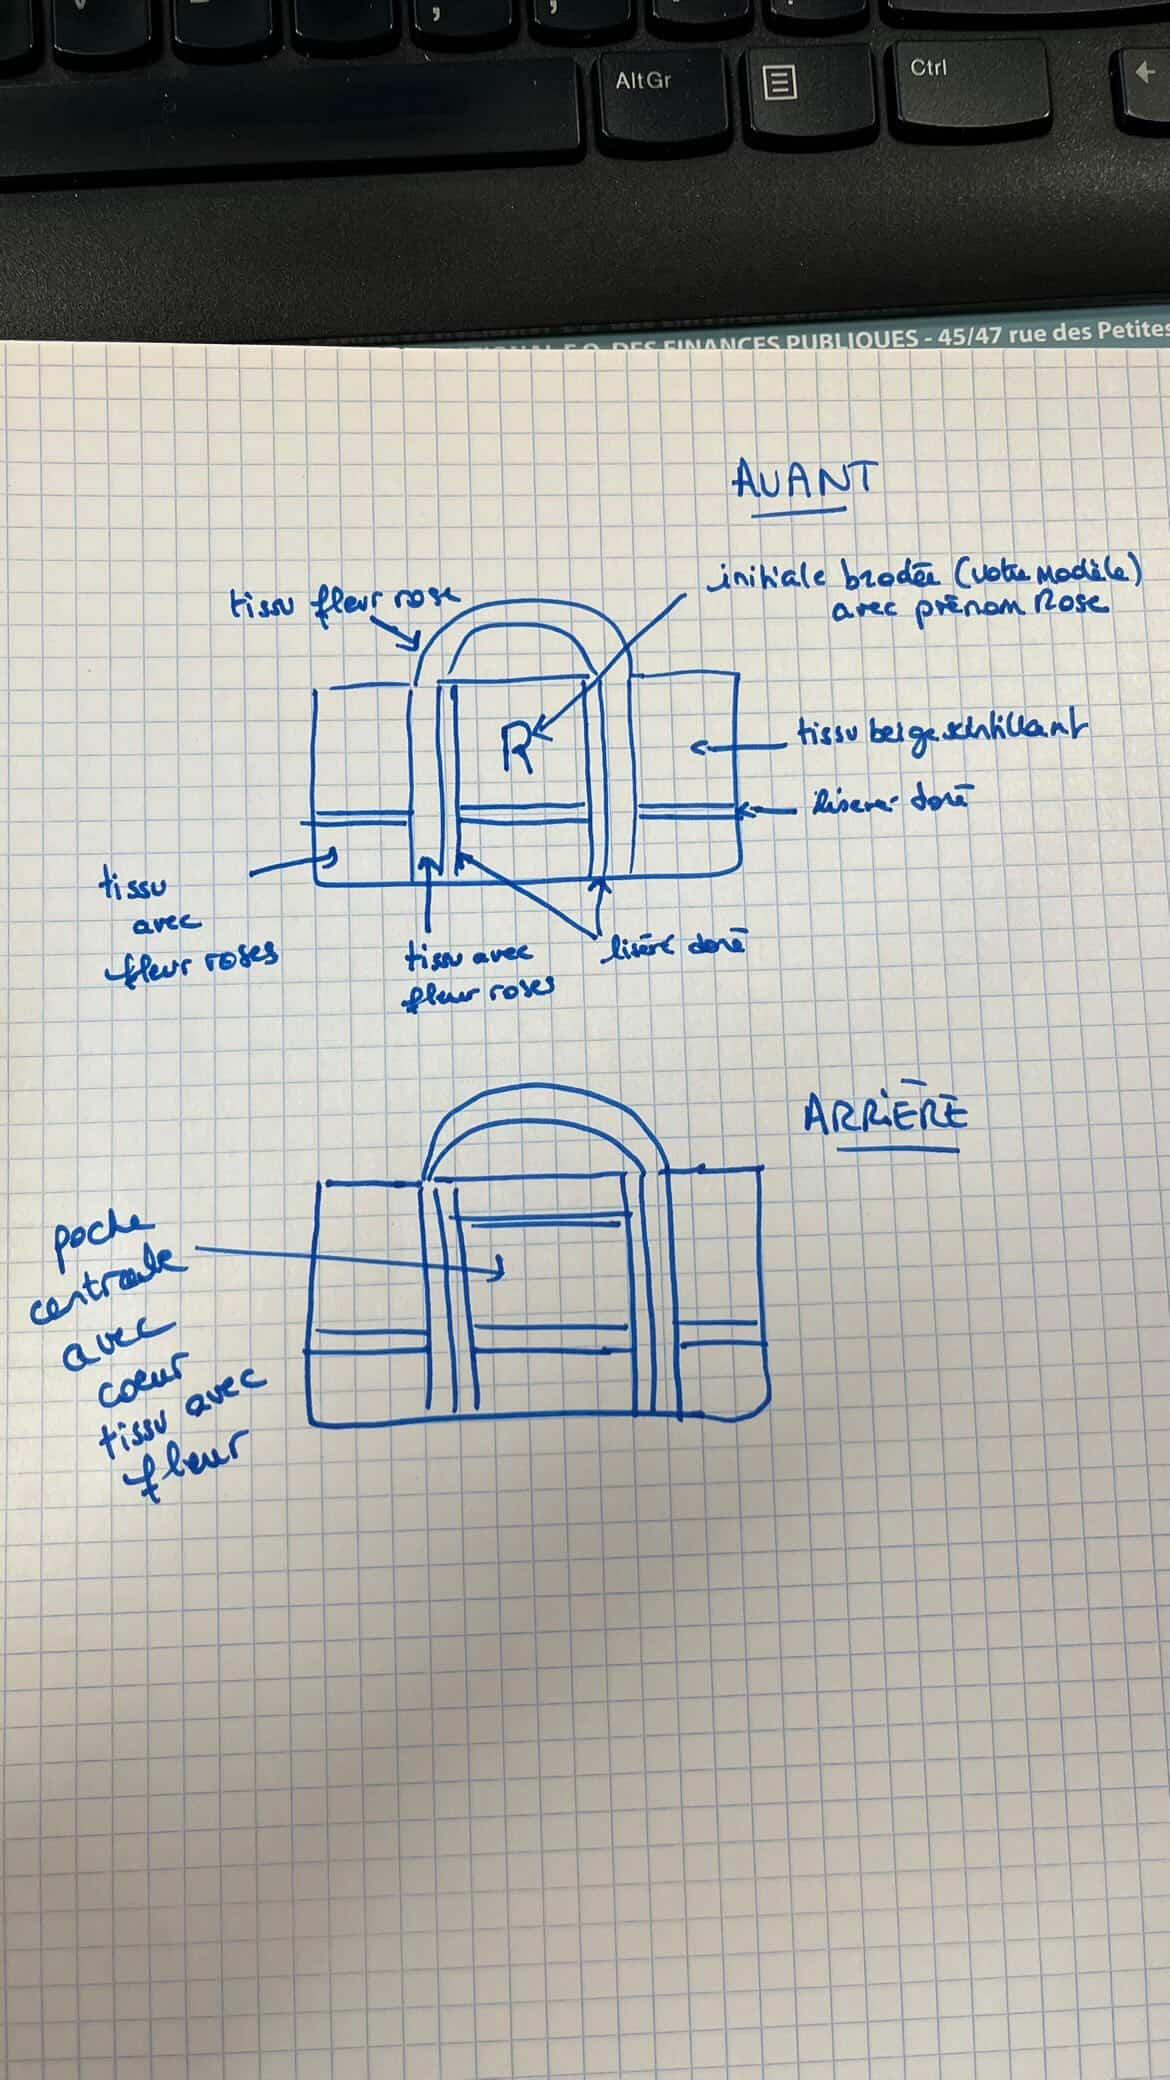 AltGr
Ctrl
DES FINANCES PUBLIQUES - 45/47 rue des Petites
AVANT
initiale brodée (votre modèle)
avec prénom Rose
tissu fleur rose
R
tissu beige scintillant
liseré doré
tissu
avec
fleur roses
tissu avec
fleur roses
liséré doré
ARRIÈRE
poche
centrale
avec
coeur
tissu avec
fleur